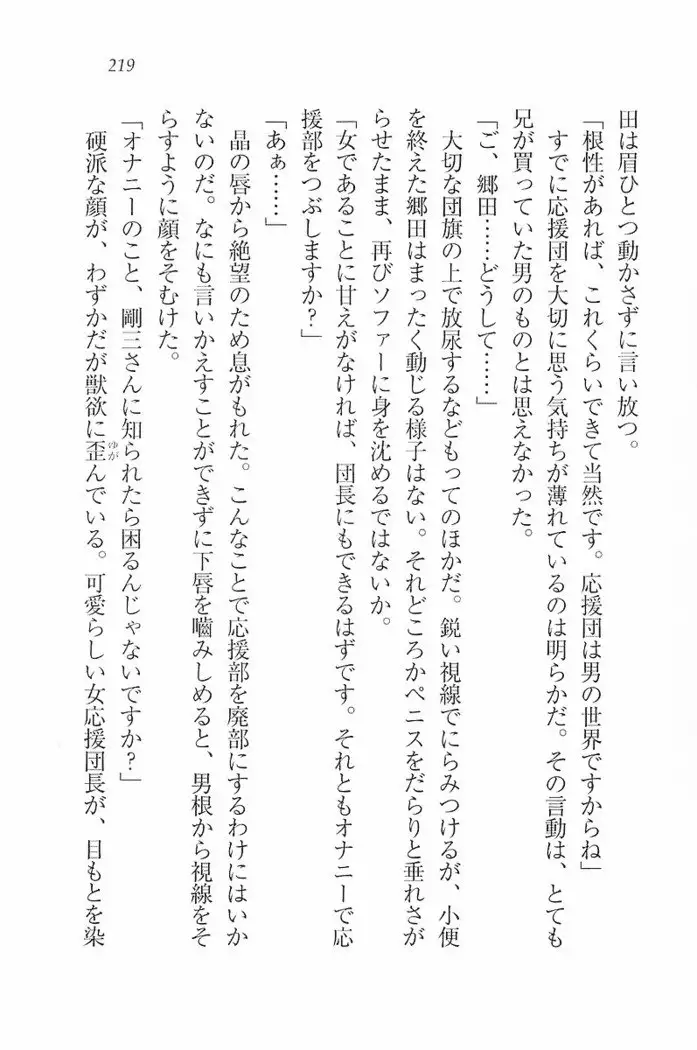 219
田は眉ひとつ動かさずに言い放つ。
「根性があれば、これくらいできて当然です。応援団は男の世界ですからね」
すでに応援団を大切に思う気持ちが薄れているのは明らかだ。その言動は、とても
兄が買っていた男のものとは思えなかった。
「ご、郷田……どうして……」
大切な団旗の上で放尿するなどもってのほかだ。鋭い視線でにらみつけるが、小便
を終えた郷田はまったく動じる様子はない。それどころかペニスをだらりと垂れさが
らせたまま、再びソファーに身を沈めるではないか。
「女であることに甘えがなければ、団長にもできるはずです。それともオナニーで応
援部をつぶしますか？」
「あぁ……」
晶の唇から絶望のため息がもれた。こんなことで応援部を廃部にするわけにはいか
ないのだ。なにも言いかえすことができずに下唇を噛みしめると、男根から視線をそ
らすように顔をそむけた。
「オナニーのこと、剛三さんに知られたら困るんじゃないですか？」
硬派な顔が、わずかだが獣欲に歪んでいる。可愛らしい女応援団長が、目もとを染